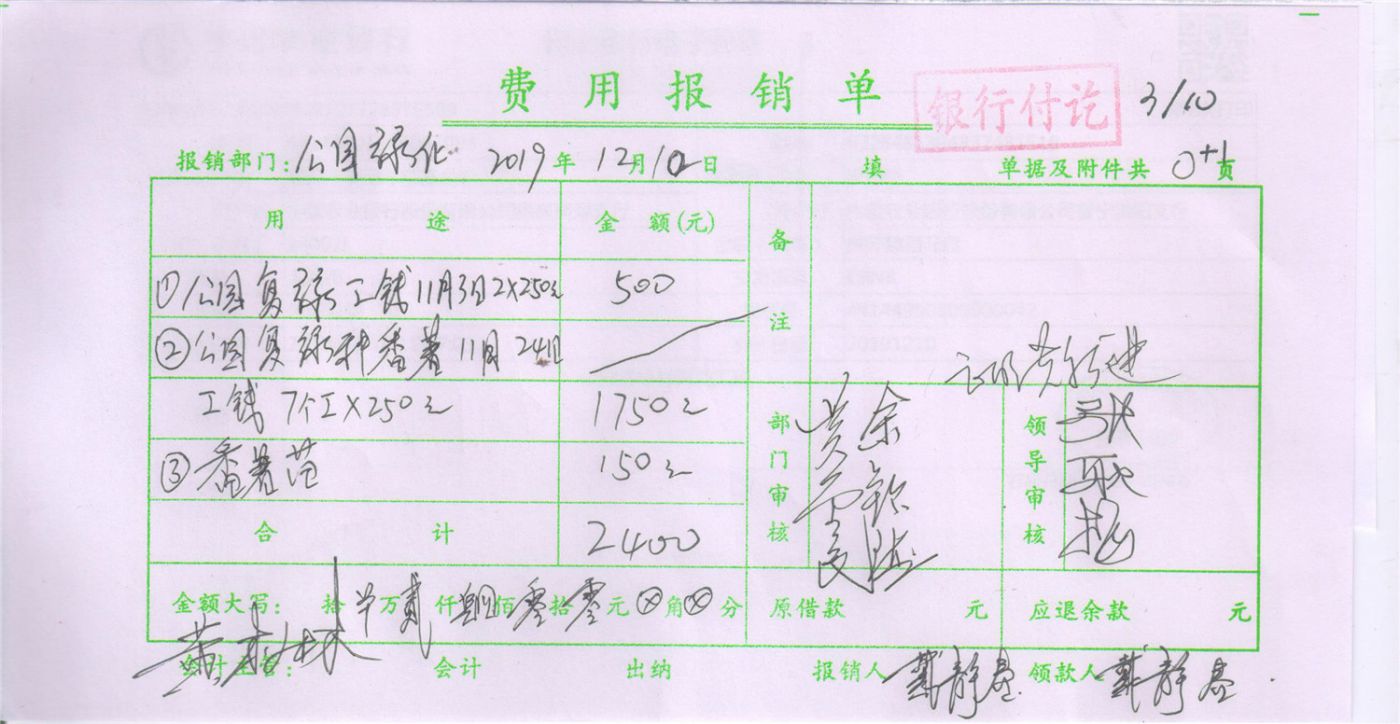 费用报销单
银行付讫
3/10
报销部门:公园绿化 2019年12月10日 填 单据及附件共 0+1 页
用途 金额(元) 备注
①公园复绿工钱11月3日2X250元 500
②公园复绿种番薯11月24日
工钱 7个工X250元 1750元
③番薯苗 150元
合计 2400
部门审核 领导审核
金额大写: 拾 万贰仟肆佰零拾零元⊗角⊗分 原借款 元 应退余款 元
会计主管: 会计 出纳 报销人 戴静 领款人 戴静